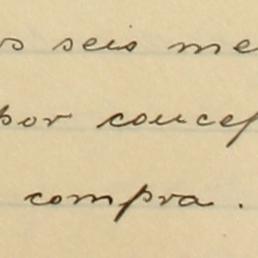 os seis me
por concep
compra.